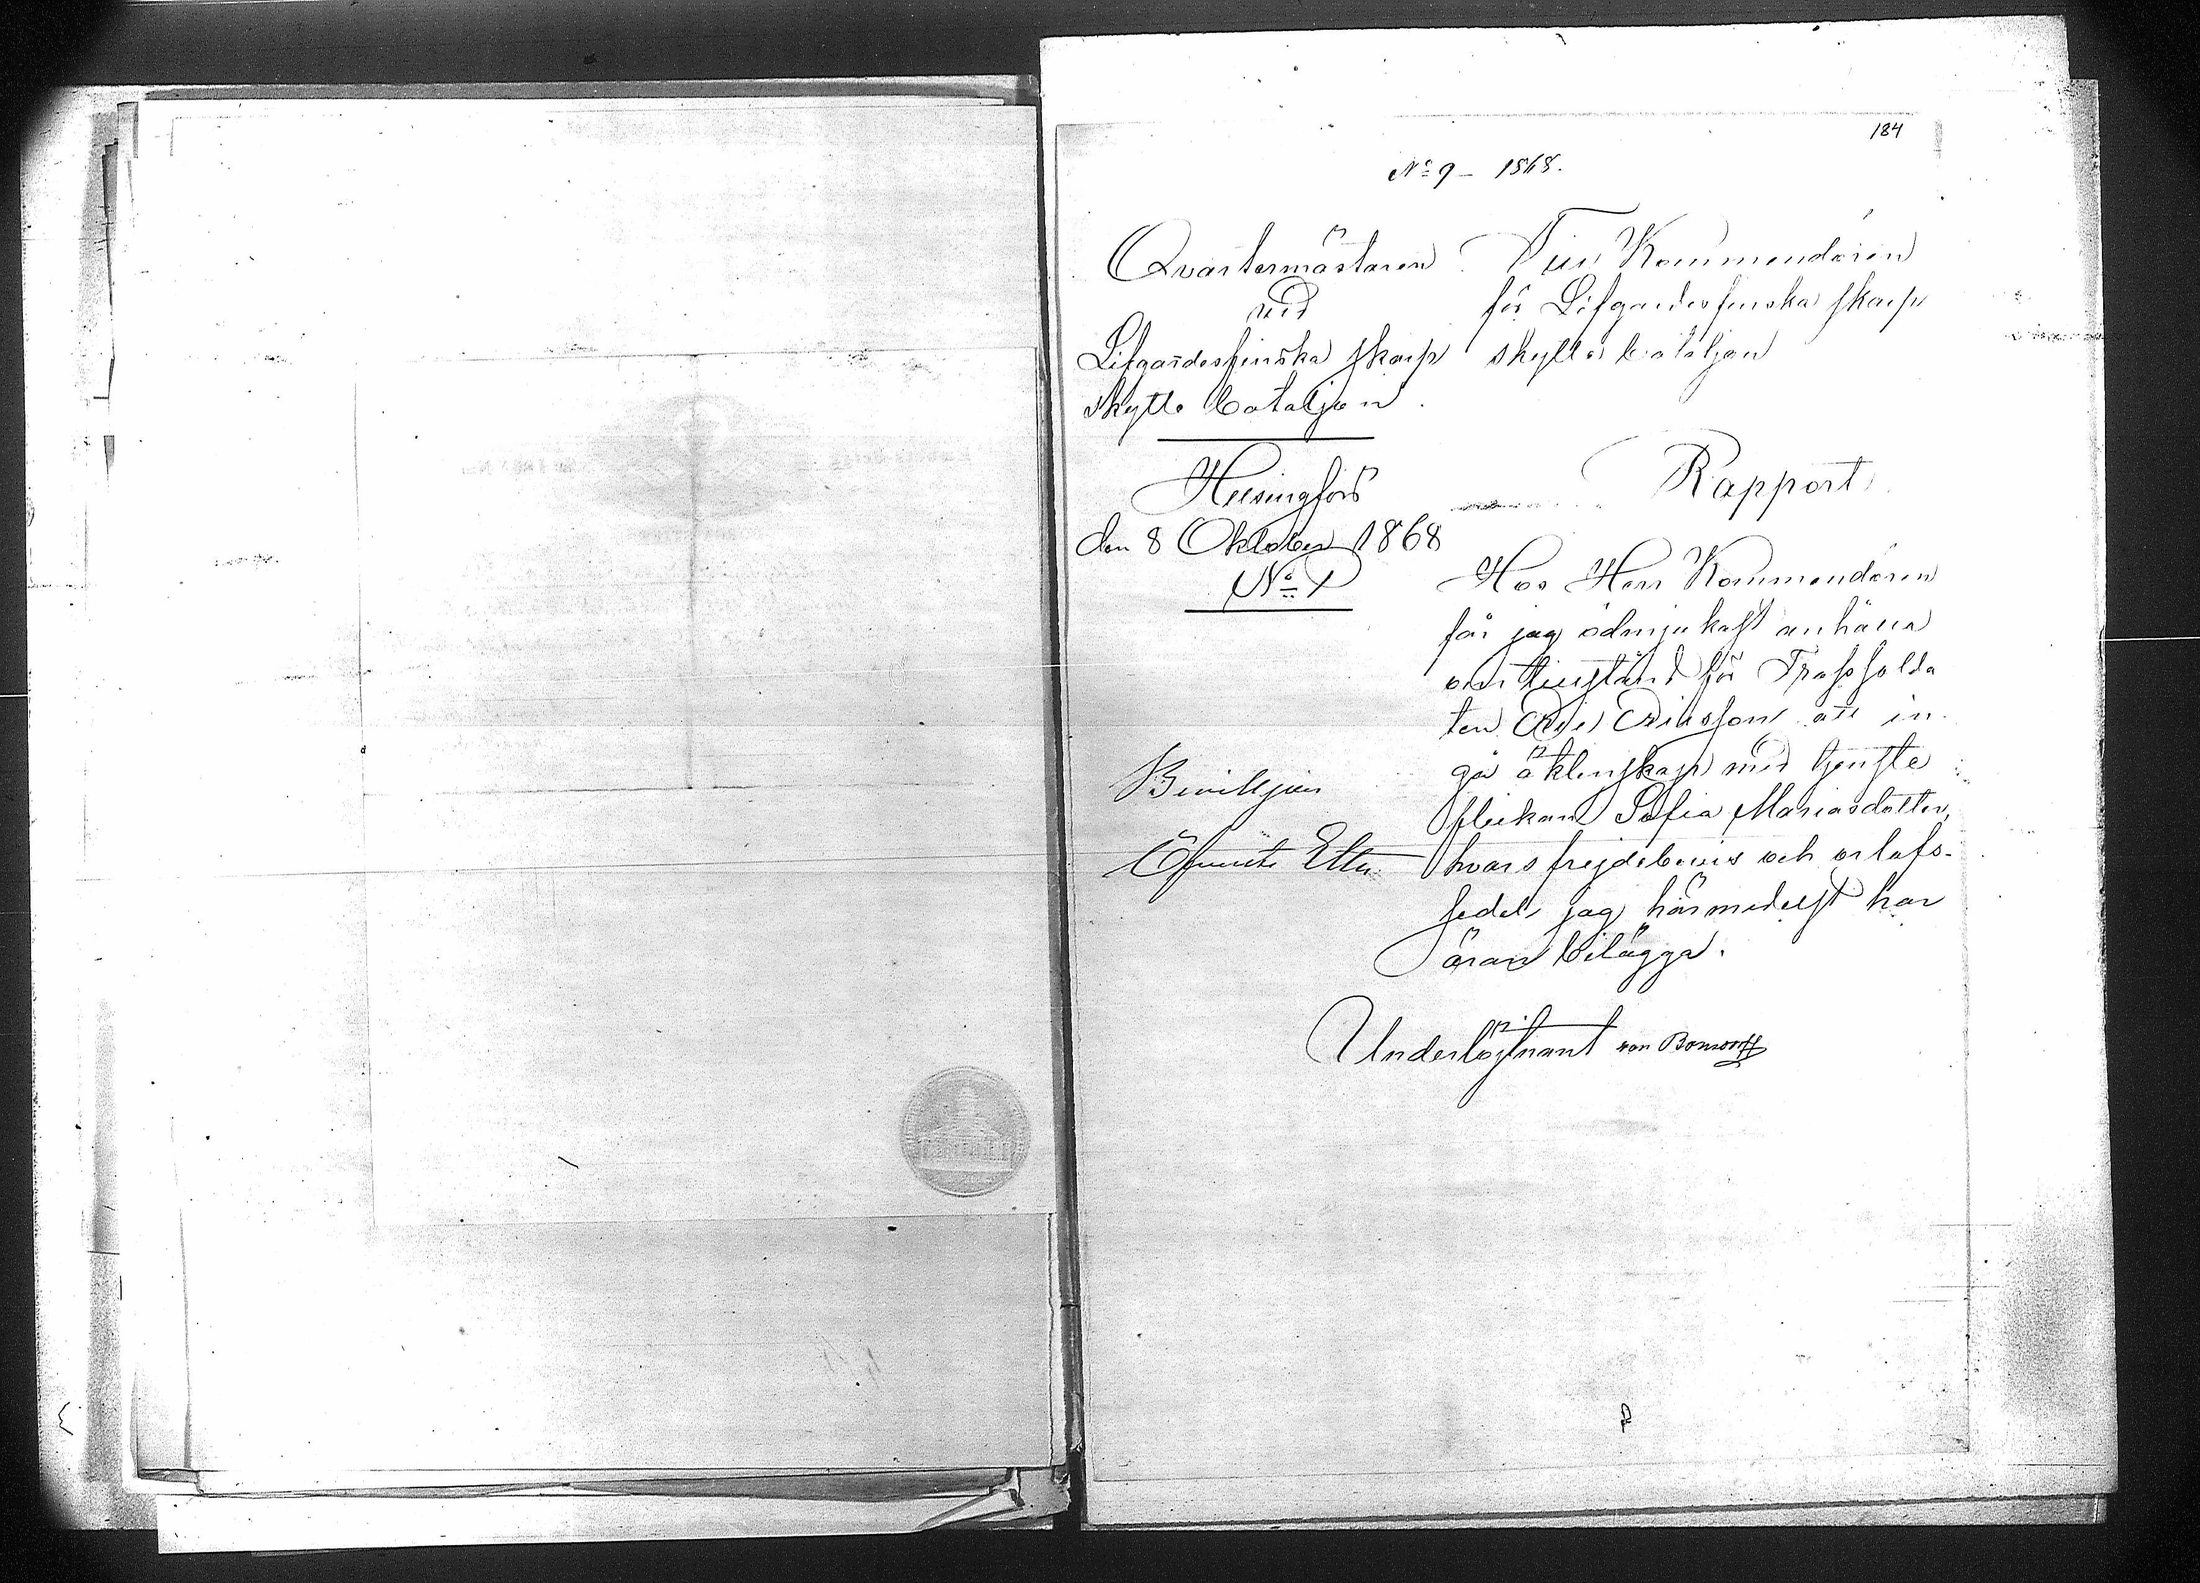 184
No 9 - 1868.
Qvartermästaren
vid
Lifgardesfinska skarp
skytte bataljon.
Helsingfors
den 8 Oktober 1868
No 1
Till Kommendören
för Lifgardesfinska skarp
skytte bataljon
Rapport
Hos Herr Kommendören
får jag ödmjukast anhålla
om tillstånd för Trossolda
ten Eriksson att in
gå äktenskap med tjenste
flickan Sofia Mariasdotter,
hvars frejdebevis och orlofs-
sedel jag härmedelst har
äran bilägga.
Underlöjtnant von Bonsdorff
Beviljas
Öfverste Etter